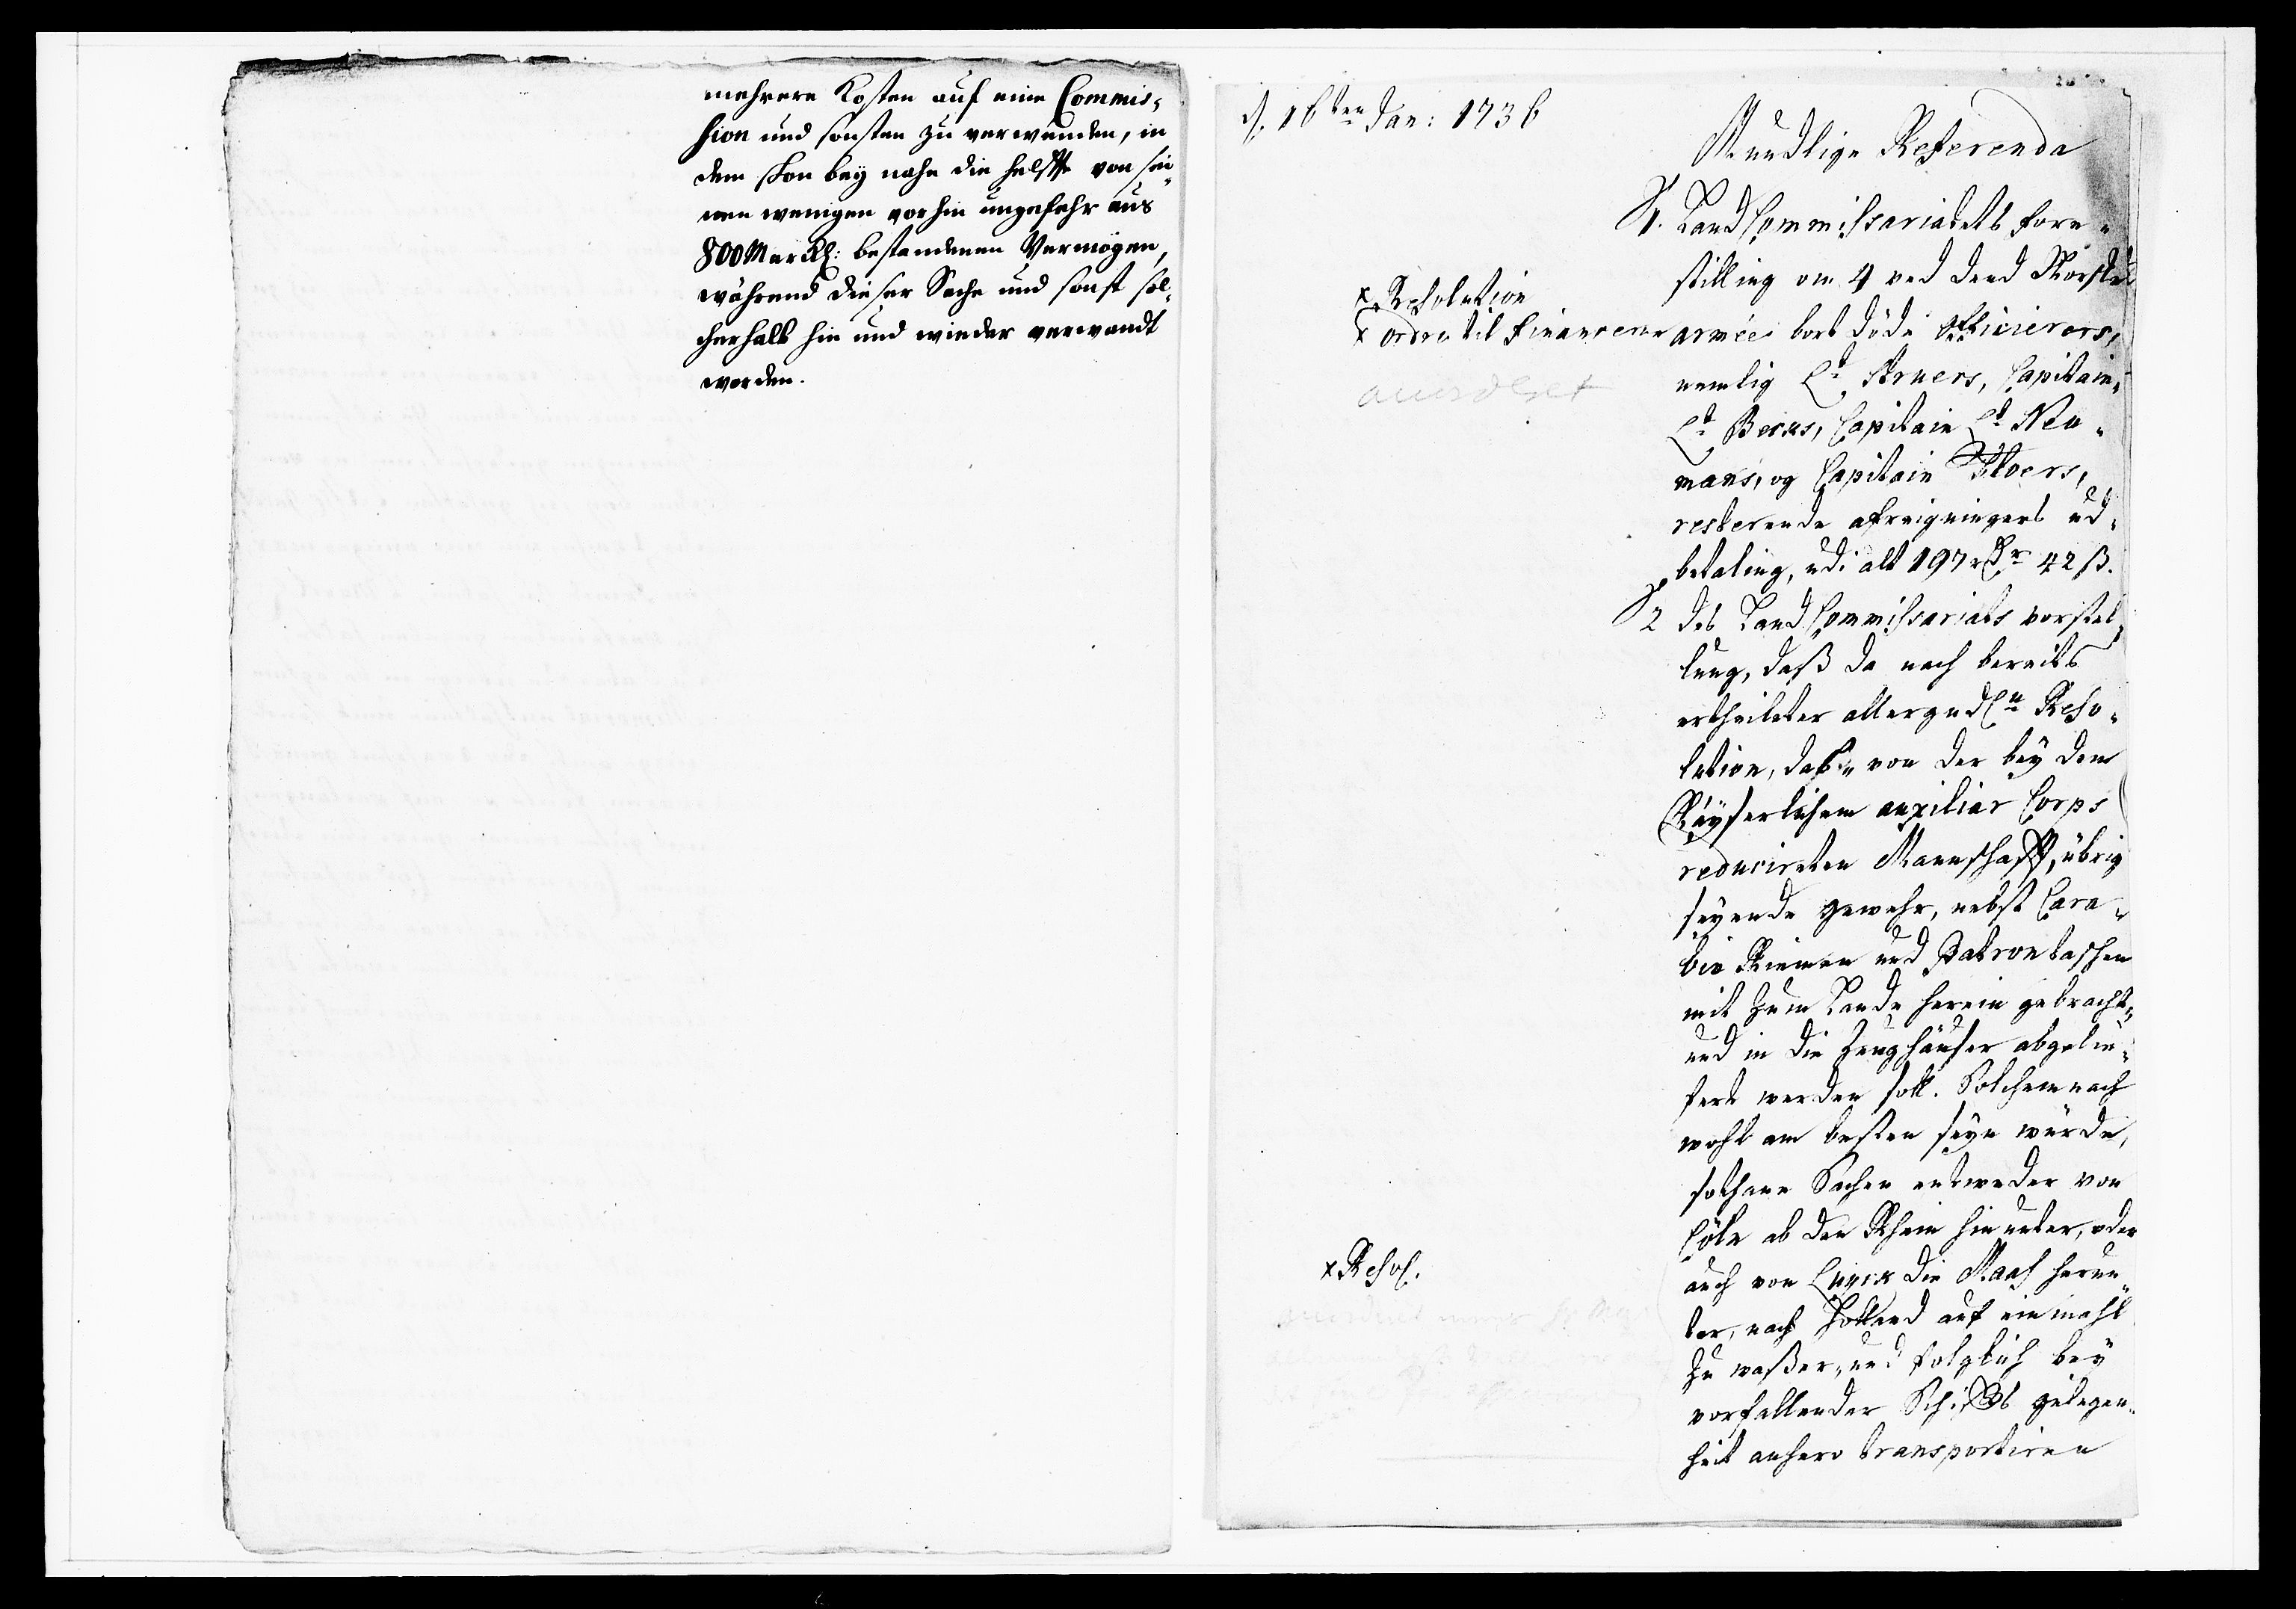 mehrere Kosten auf eine Commis-
sion und sonsten zu verwenden, in
dem schon bey nahe die helffte von sei-
nen wenigen vorhin ungefehr aus
800 Marck: bestandenen Vermögen,
während dieser Sache und sonst sol-
cherhalb hin und wieder verwandt
worden.
d. 16ten Jan: 1736
Mundlige Referenda
1. Land Commissariatets fore-
stilling om 4 ved dend Norske
x Resolution
x ordre til Financerne
armée bort döde officierers,
nemlig Lt. Struers, Capitain
Lt Berks, Capitain Lt Neu-
mans, og Capitain
resterende afreigningers ud-
betaling, udi alt 197 rdr 42 ß.
2 des Land Commissariats vorstel-
lung, daß da nach bereits
ertheileter allergndln Reso-
lution, das von der bey dem
Käyserlichem auxiliar Corps
reducireten Mannschafft, übrig
seyende gewehr, nebst Cara-
bin Riemen und Patrontaschen
mit zum Lande herein gebracht,
und in die Zeughäuser abgelie-
fert werden soll. Solchemnach
wohl am besten seyn würde,
sothane Sachen entweder von
Cöln ab den Rhein hinunter, oder
x Resol.
auch von Lüyck die Maas herun-
ter, nach Holland auf einmahl
zu waßer, und folglich bey
vorfallender Schiffs gelegen-
heit anhero transportiren